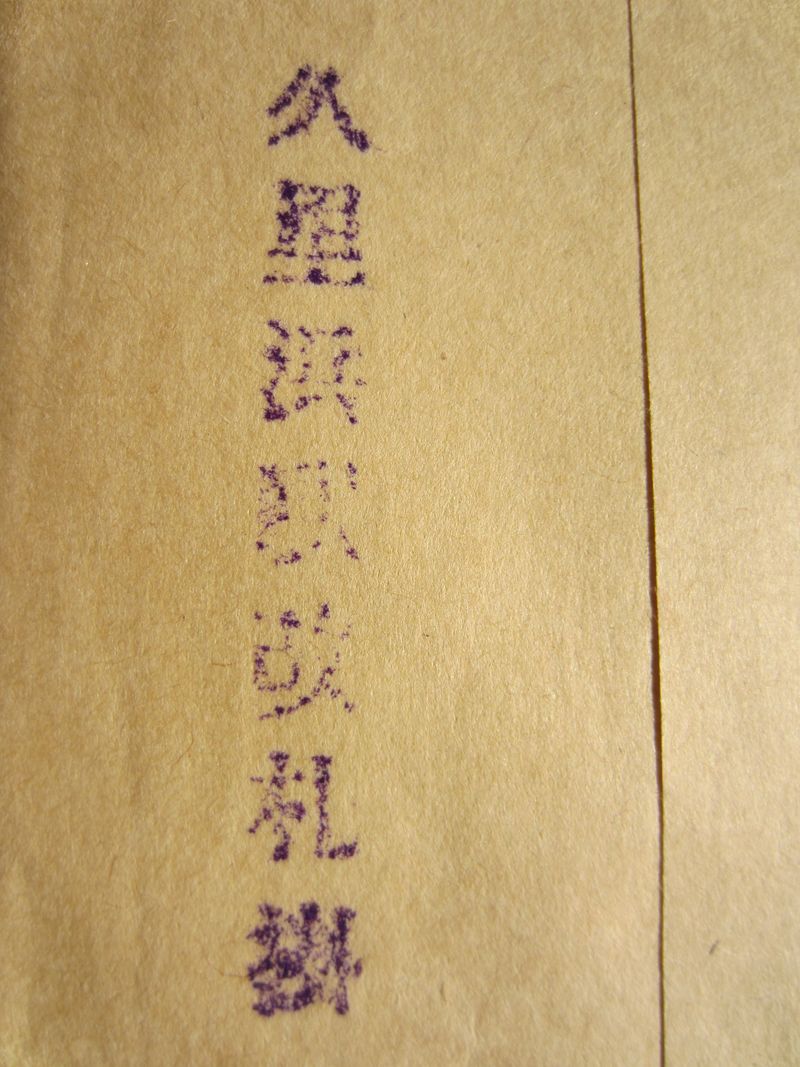 久里浜駅改札掛